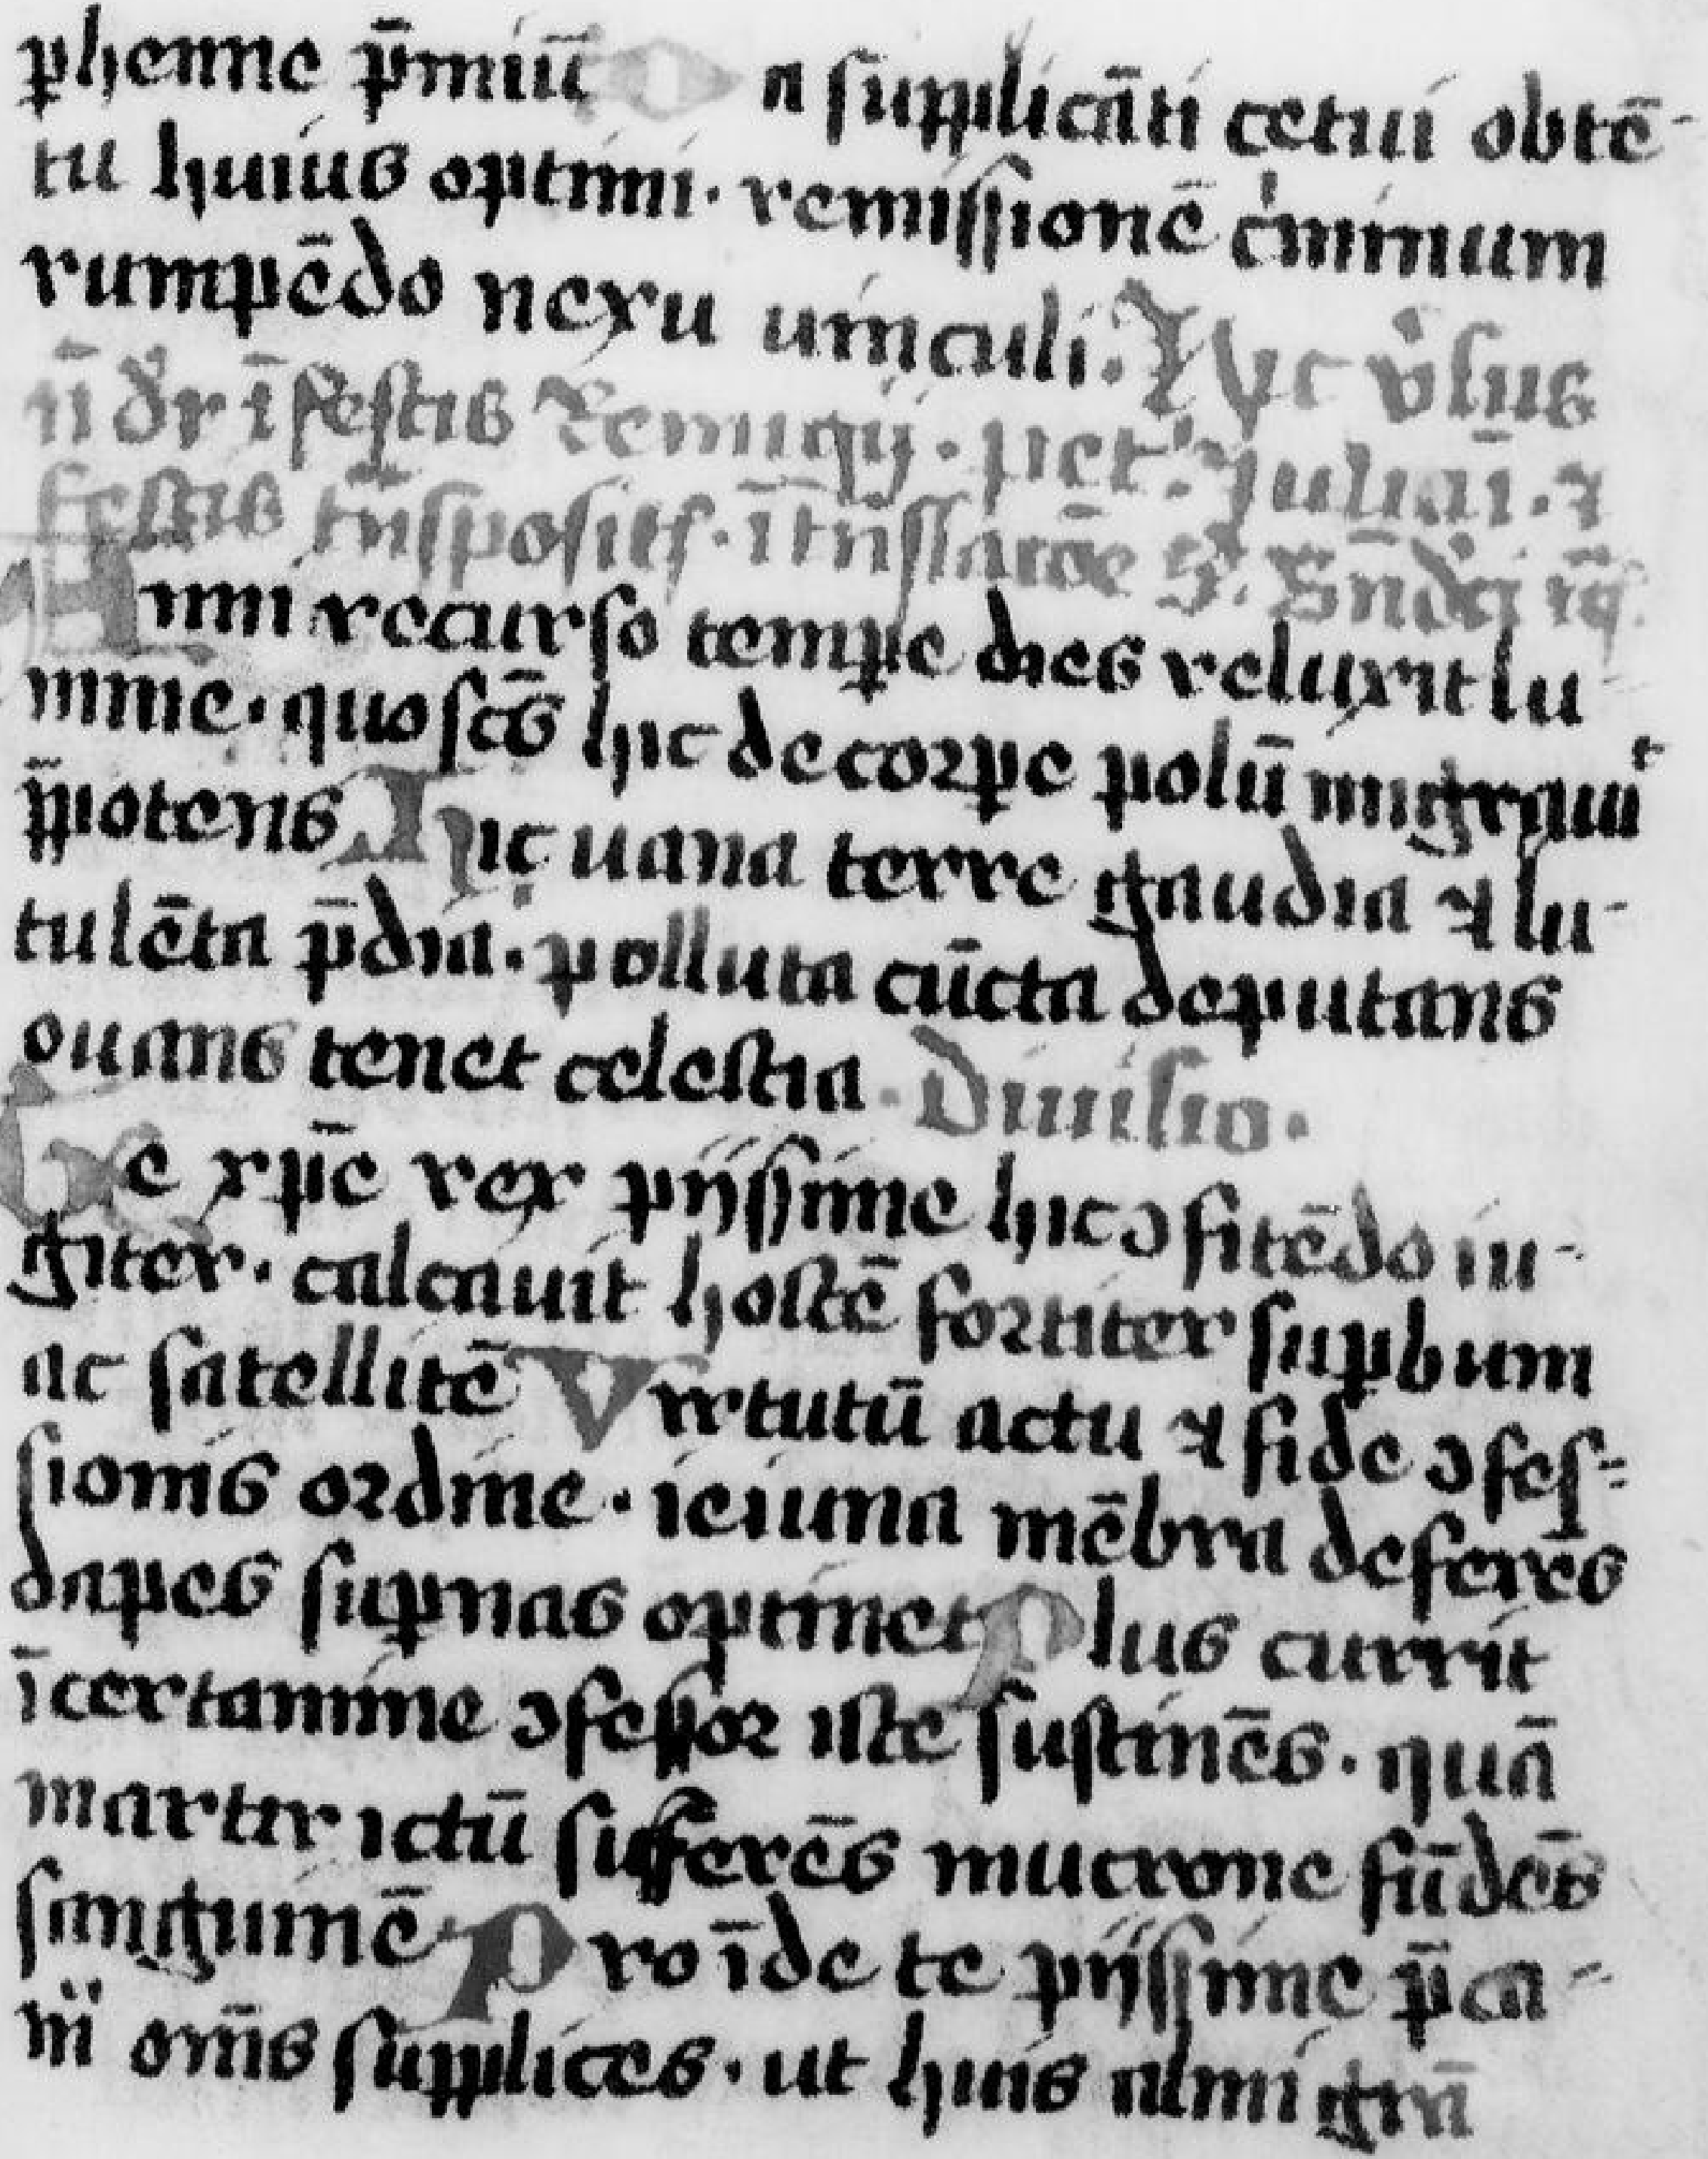 ꝑhenne p̄miū Da supplicāti cetui obtē-
tu huius optimi. remissionē cͥminum
rumpēdo nexu uinculi. Hic v̉sus
nͦ dr̄ ī festis Remigij. pet.ͥ Juliāi. ⁊
festis tn̄sposit͛. ī tn̄slatōe S.
Anni recurso tempꝑe dies reluxit lu
mine. quo scūs hic de corꝑe polū migrauiͭ
p̄potens Hic uana terre gaudia ⁊ lu-
tulēta p̄dia. polluta cūcta deputans
ouans tenet celestia. Diuisio.
Te xp̄e rex pijssime hic ꝯfitēdo iu-
giter. calcauit hostē fortiter suꝑbum
ac satellitē Virtutū actu ⁊ fide ꝯfes-
sionis ordine. ieiuna mēbra deferēs
dapes suꝑnas optinet Plus currit
ī certamine ꝯfessor iste sustinēs. quā
martir ictū sufferēs mucrone fūdēs
sanguinē Proīde te pijssime p̄ca-
mͬ om̄s supplices. ut huiꝰ almi grā